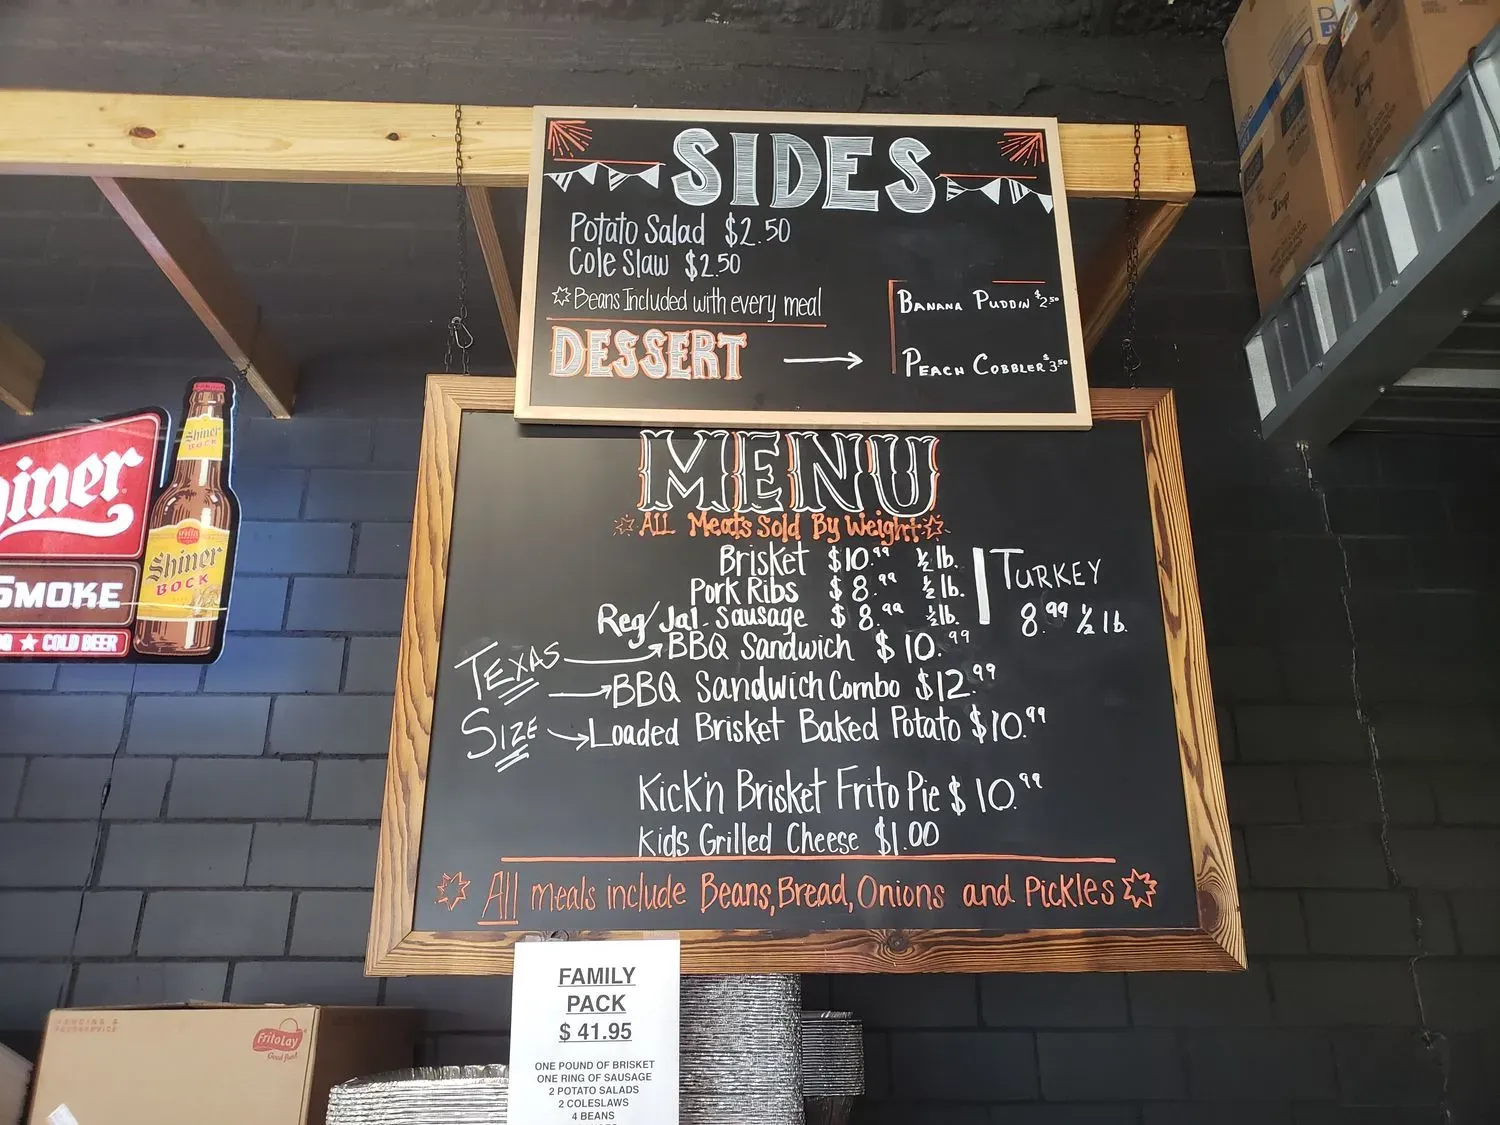 SIDES
Potato Salad $2.50
Cole Slaw $2.50
Beans Included with every meal
DESSERT
BANANA PUDDIN $2.50
PEACH COBBLER $3.50
MENU
ALL Meats Sold By Weight
Brisket $10.99 ½ lb.
Pork Ribs $8.99 ½ lb.
Reg/Jal. Sausage $8.99 ½ lb.
TURKEY
8.99 ½ lb.
TEXAS
SIZE
BBQ Sandwich $10.99
BBQ Sandwich Combo $12.99
Loaded Brisket Baked Potato $10.99
Kick'n Brisket Frito Pie $10.99
Kids Grilled Cheese $1.00
All meals include Beans, Bread, Onions and Pickles
Shiner
BOCK
Shiner
BOCK
SMOKE
COLD BEER
FritoLay
Good fun!
FAMILY
PACK
$ 41.95
ONE POUND OF BRISKET
ONE RING OF SAUSAGE
2 POTATO SALADS
2 COLESLAWS
4 BEANS